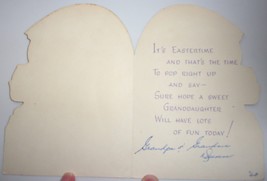 It's Eastertime
and that's the time
To pop right up
and say—
Sure hope a sweet
granddaughter
Will have lots
of fun today!
Grandpa & Grandma